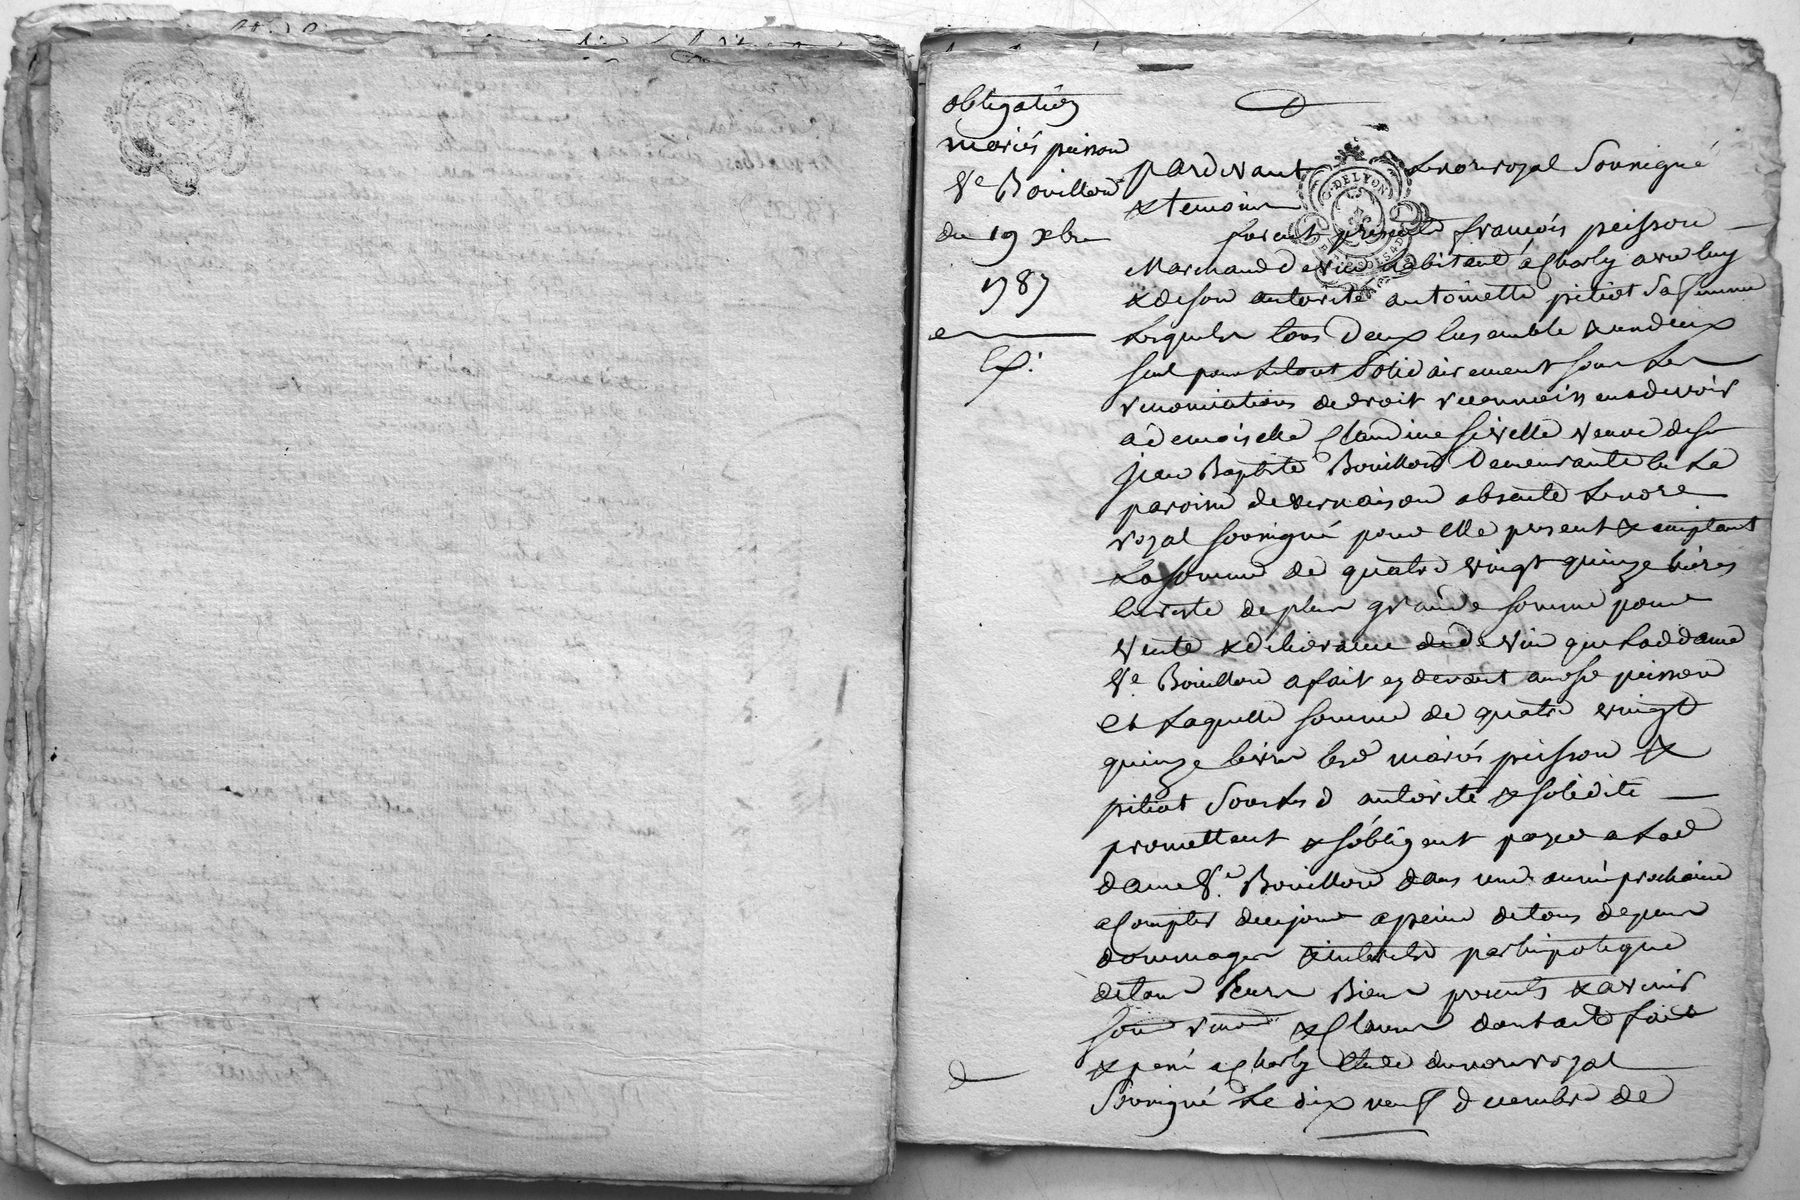 obligation
mariés peisson
Ve Bouillon
du 19 xbre
1787
Ex.
pardevant le nore royal soussigné
& temoins
furent presents françois peisson
Marchand de vin habitant a Charly avec luy
& de son autorité antoinette pitiot sa femme
lesquels tous deux ensemble & un deux
seul pour le tout solidairement sous les
renonciations de droit reconnoissent devoir
a demoiselle Claudine sivelle veuve de sr
jean Baptiste Bouillon demeurante en la
paroisse de vernaison absente le nore
royal soussigné pour elle present & acceptant
la somme de quatre vingt quinze livres
en reste de plus grande somme pour
vente & delivrance de vin que lad dame
Ve Bouillon a fait cy devant aud sr peisson
et laquelle somme de quatre vingt
quinze livres lesd mariés peisson &
pitiot sous lesd autorité & solidité
promettent & s'obligent payer a lad
dame Ve Bouillon dans une année prochaine
a compter de ce jour a peine de tous depens
dommages & interets par hipoteque
de tous leurs Biens presents & a venir
sous renon & clauses dont acte fait
& passé a Charly etude du nore royal
soussigné le dix neuf decembre de
G. DE LYON